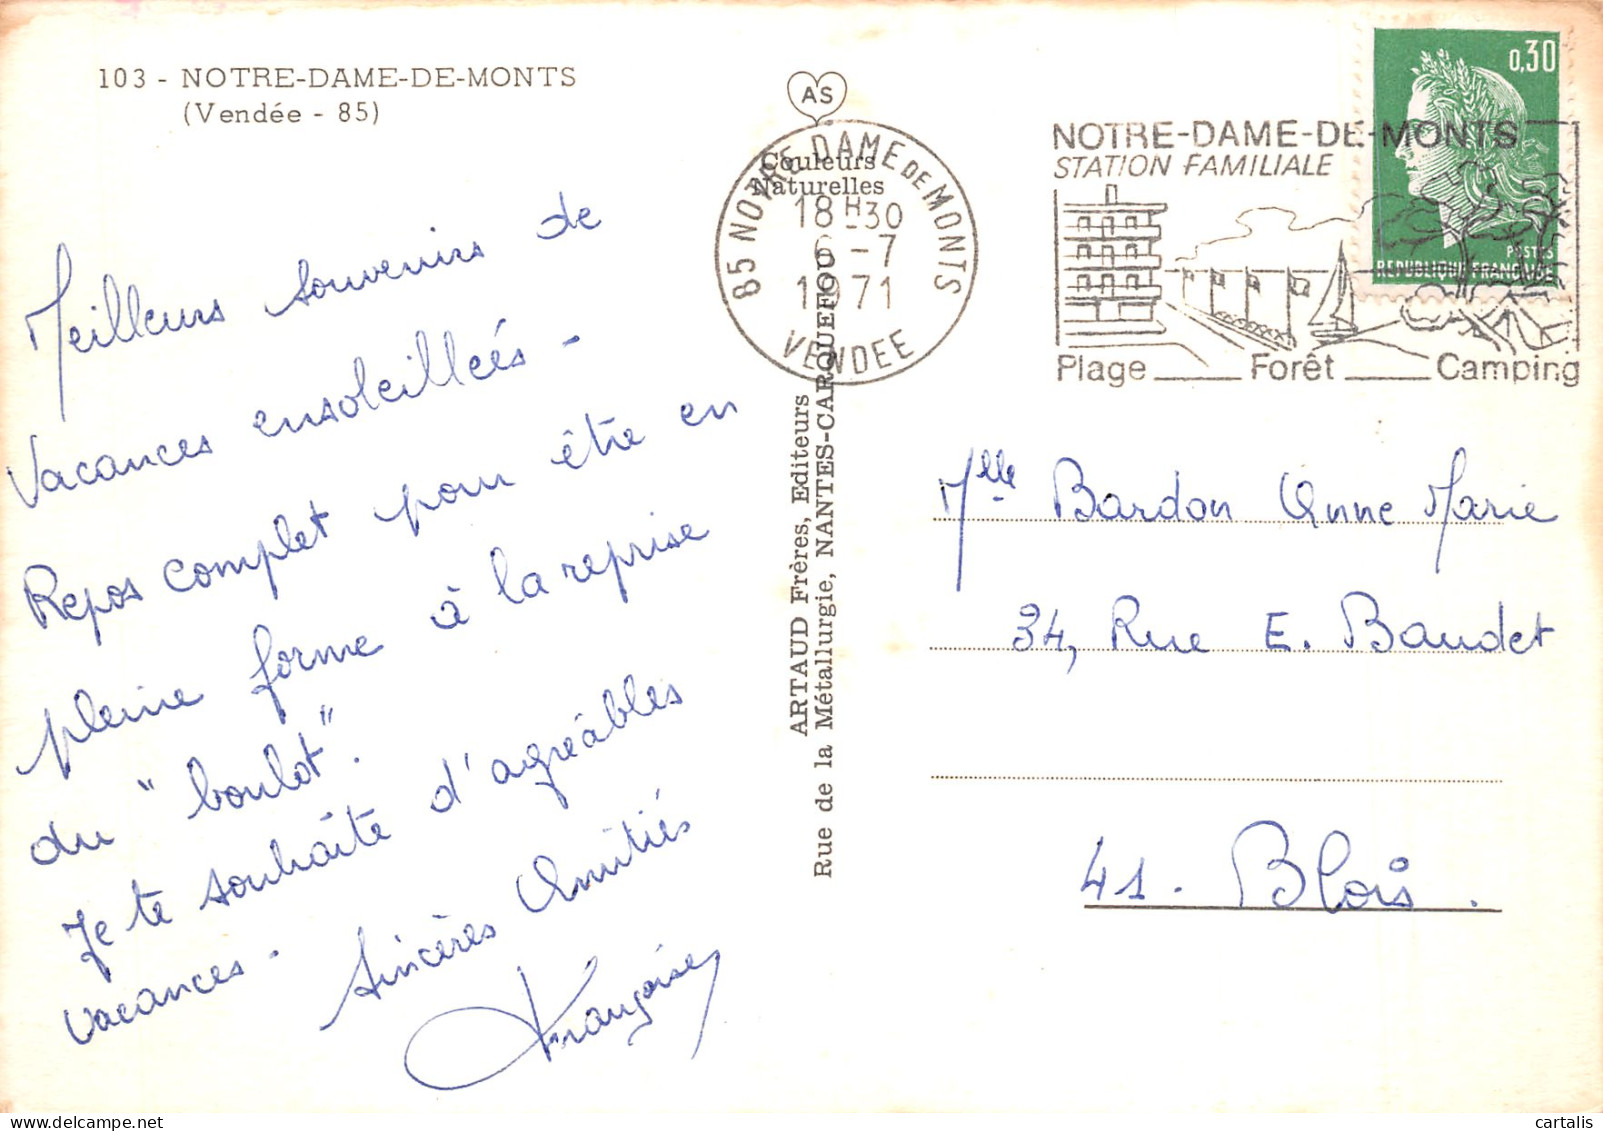 103 - NOTRE-DAME-DE-MONTS
(Vendée - 85)
Meilleurs souvenirs de
Vacances ensoleillées -
Repos complet pour être en
pleine forme à la reprise
du "boulot".
Je te souhaite d'agréables
vacances -
Sincères Amitiés
Françoise
AS
Couleurs
Naturelles
ARTAUD Frères, Editeurs
Rue de la Métallurgie, NANTES-CARQUEFOU
85 NOTRE DAME DE MONTS
18H30
6-7
1971
VENDEE
NOTRE-DAME-DE-MONTS
STATION FAMILIALE
Plage ___ Forêt ___ Camping
0,30
POSTES
REPUBLIQUE FRANCAISE
Mlle Bardon Anne Marie
34, Rue E. Baudet
41. Blois.
cartalis